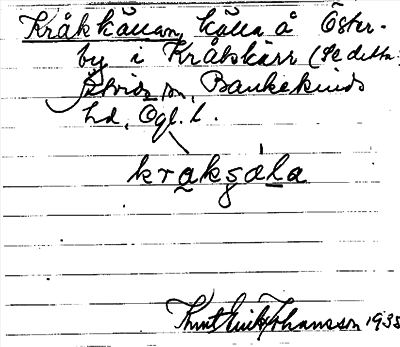 Kråkkällan, källa å Öster-
by i Kråkkärr (Se detta)
sn, Bankekinds
hd, Ögl. l.
kråksäla
Knut Erik Johansson 1935